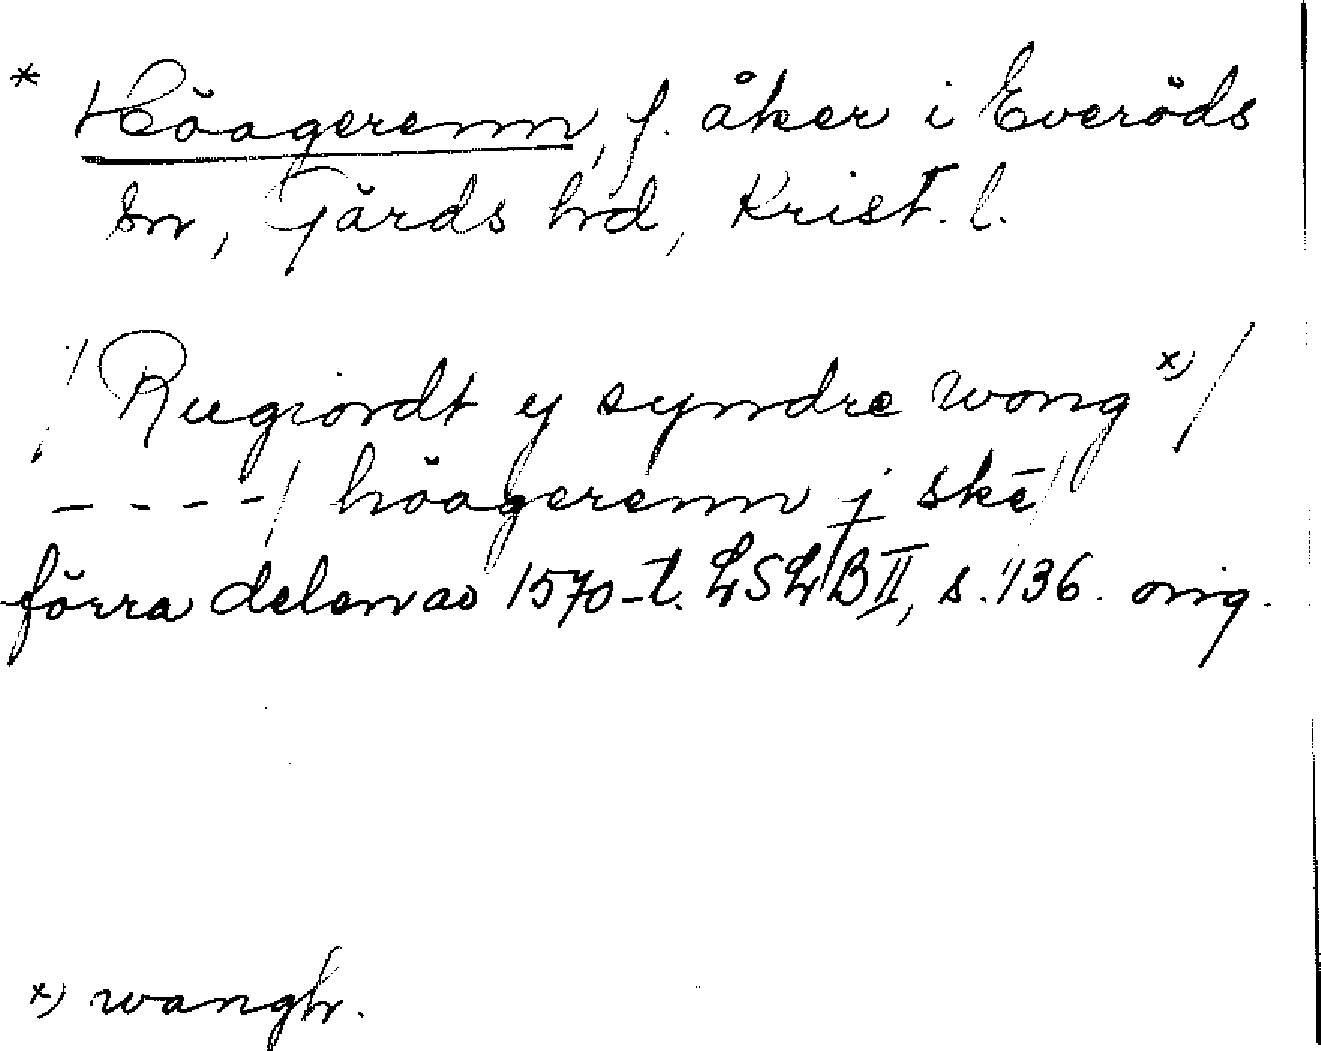 * Höagerenn, f. åker i Everöds
sn, Gärds hd, Krist. l.
/ Rugiordt y syndre wong x) /
- - - - / höagerenn j skē /
förra delen av 1570-t. LSLB II, s. 136. orig.
x) wangh.